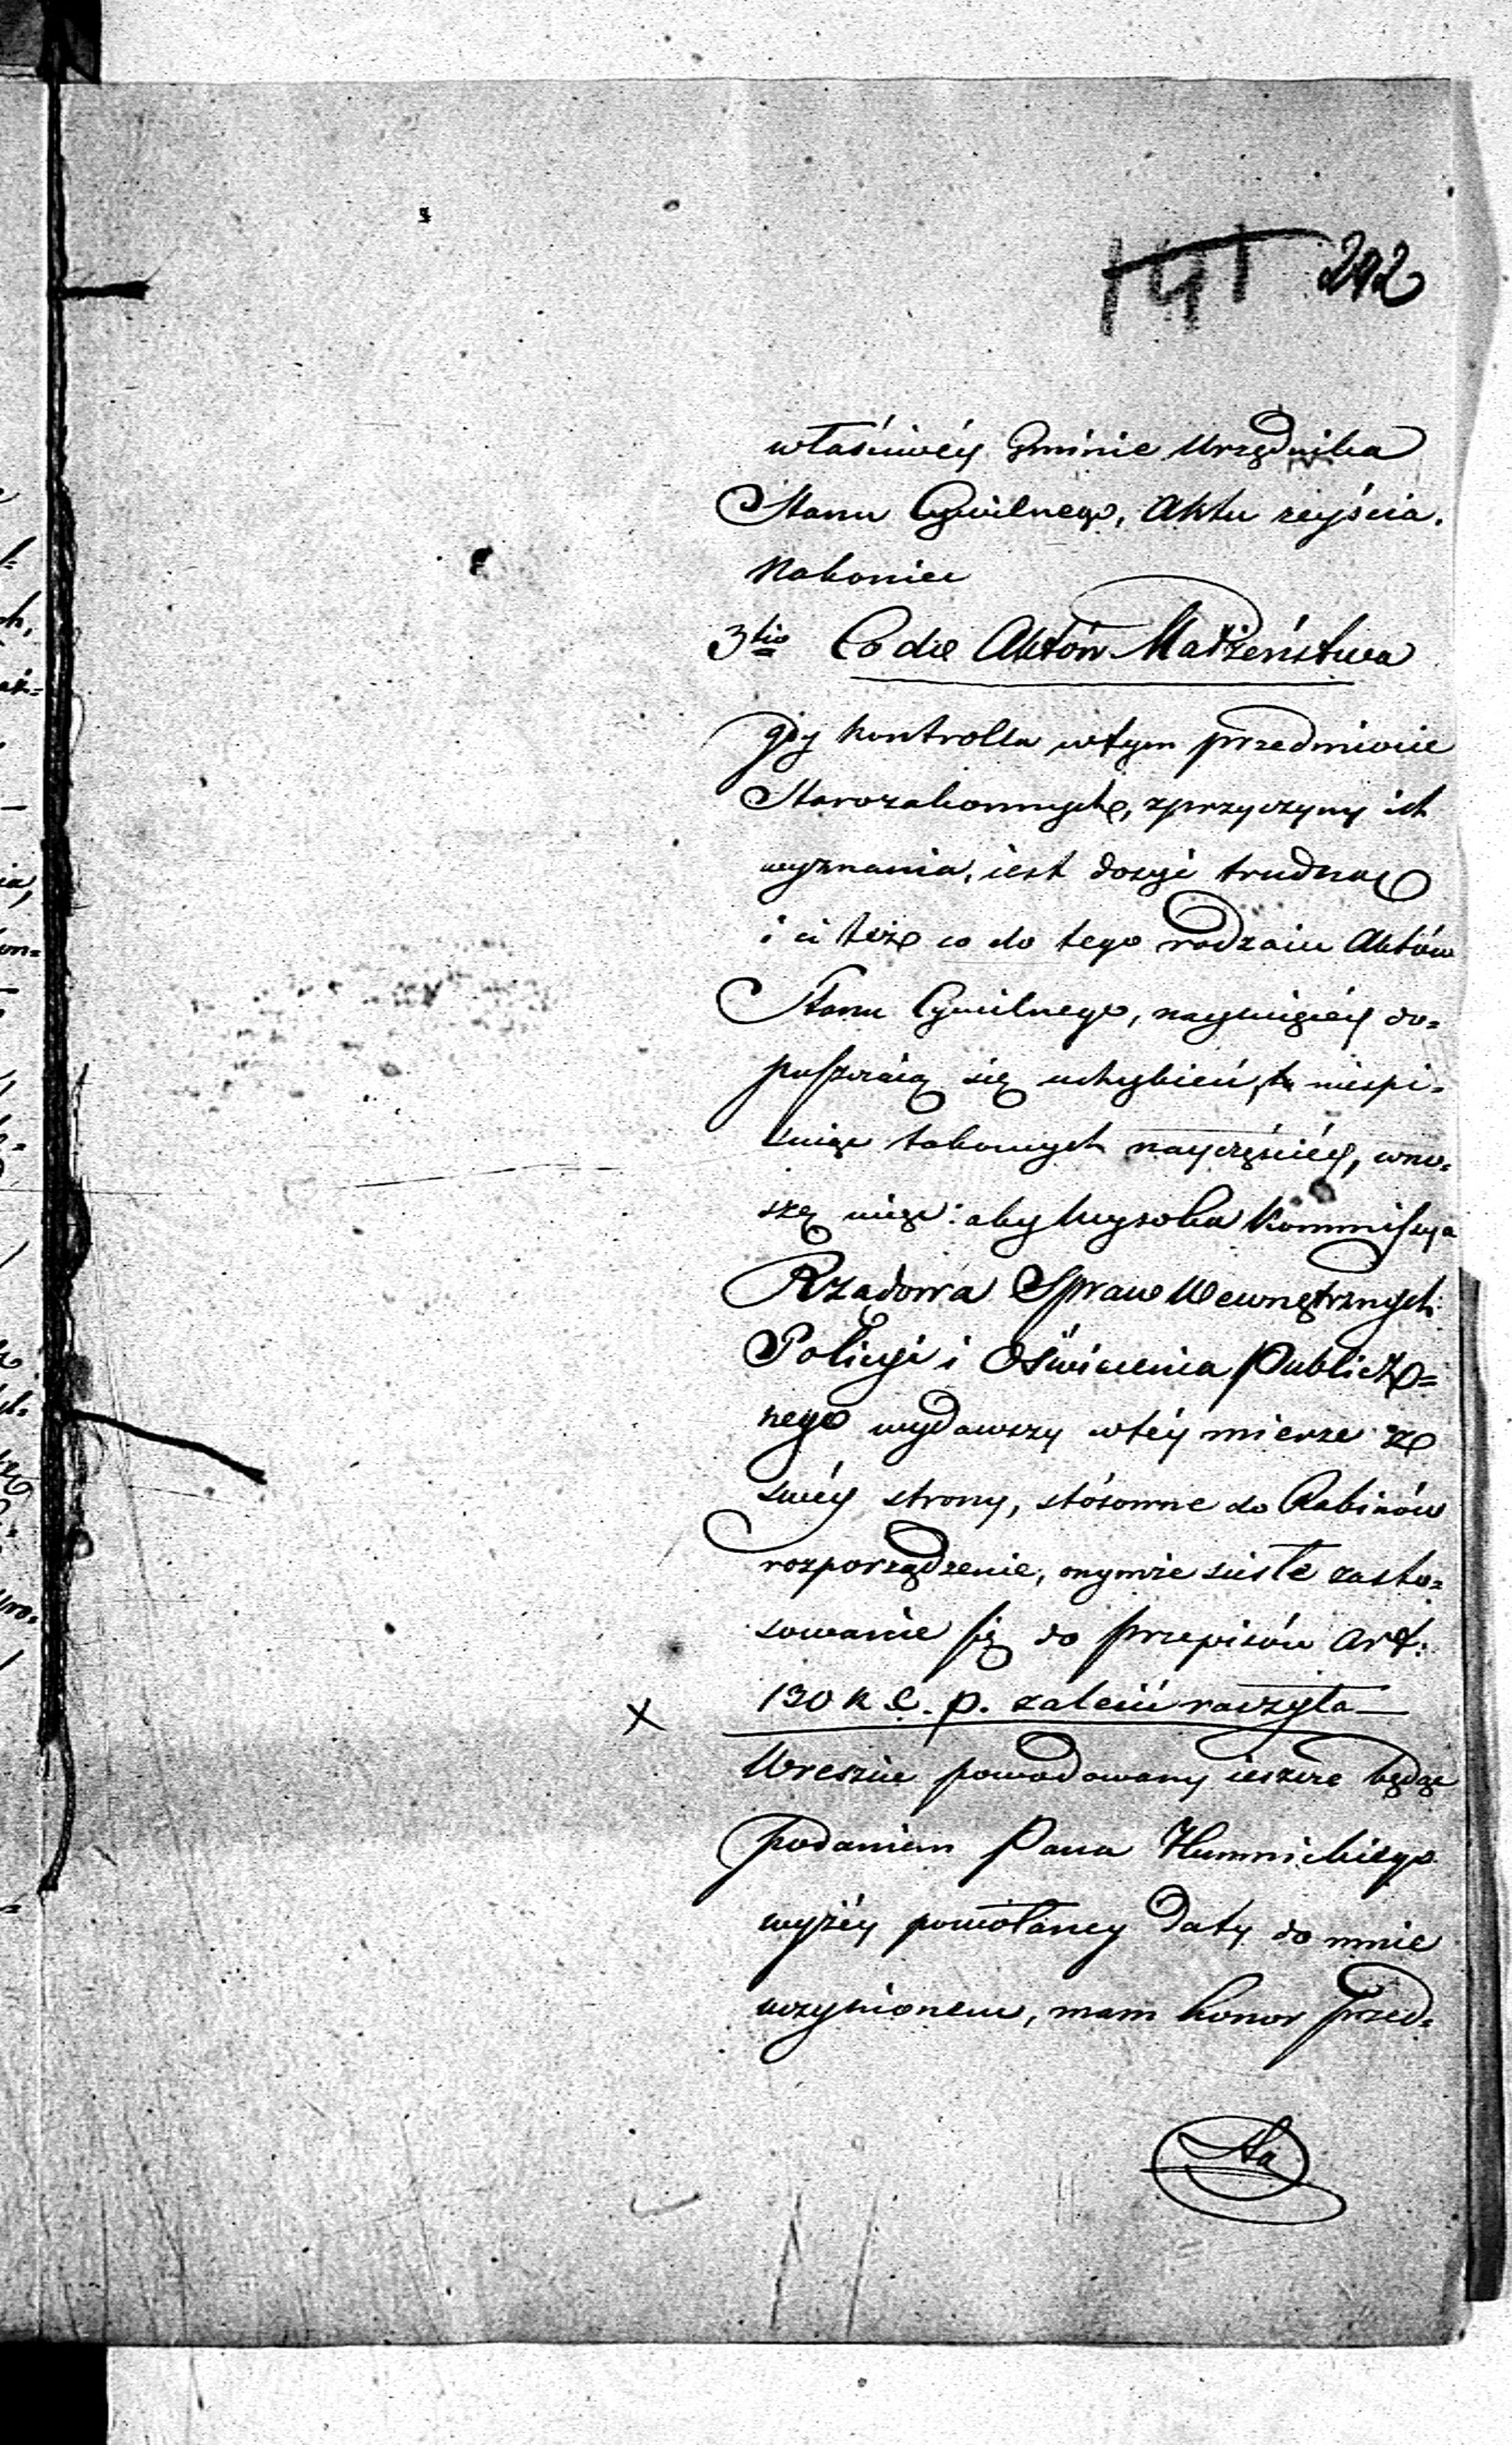 141 242
właściwéy Gminie Urzędnika
Stanu Cywilnego, Aktu zeyścia.
Nakoniec
3tio Co do Aktów Małżeństwa
gdy kontrolla wtym przedmiocie
Starozakonnych, zprzyczyny ich
wyznania, iest dosyć trudną
i ci też co do tego rodzaiu Aktów
Stanu Cywilnego, naywięcéy do=
puszczaią się uchybień, niespi=
suiąc takowych nayczęściéy, wno=
szę więc: aby Wysoka Kommissya
Rządowa Spraw Wewnętrznych
Policyi i Oświecenia Publicz=
nego wydawszy wtéy mierze ze
swéy strony, stósowne do Rabinów
rozporządzenie, onymże ścisłe zasto=
sowanie się do przepisów Art:
130 K C. P. zalecić raczyła—
Wreszcie powodowany ieszcze będąc
podaniem Pana Humnickiego
wyżéy powołaney daty do mnie
uczynionem, mam honor przed=